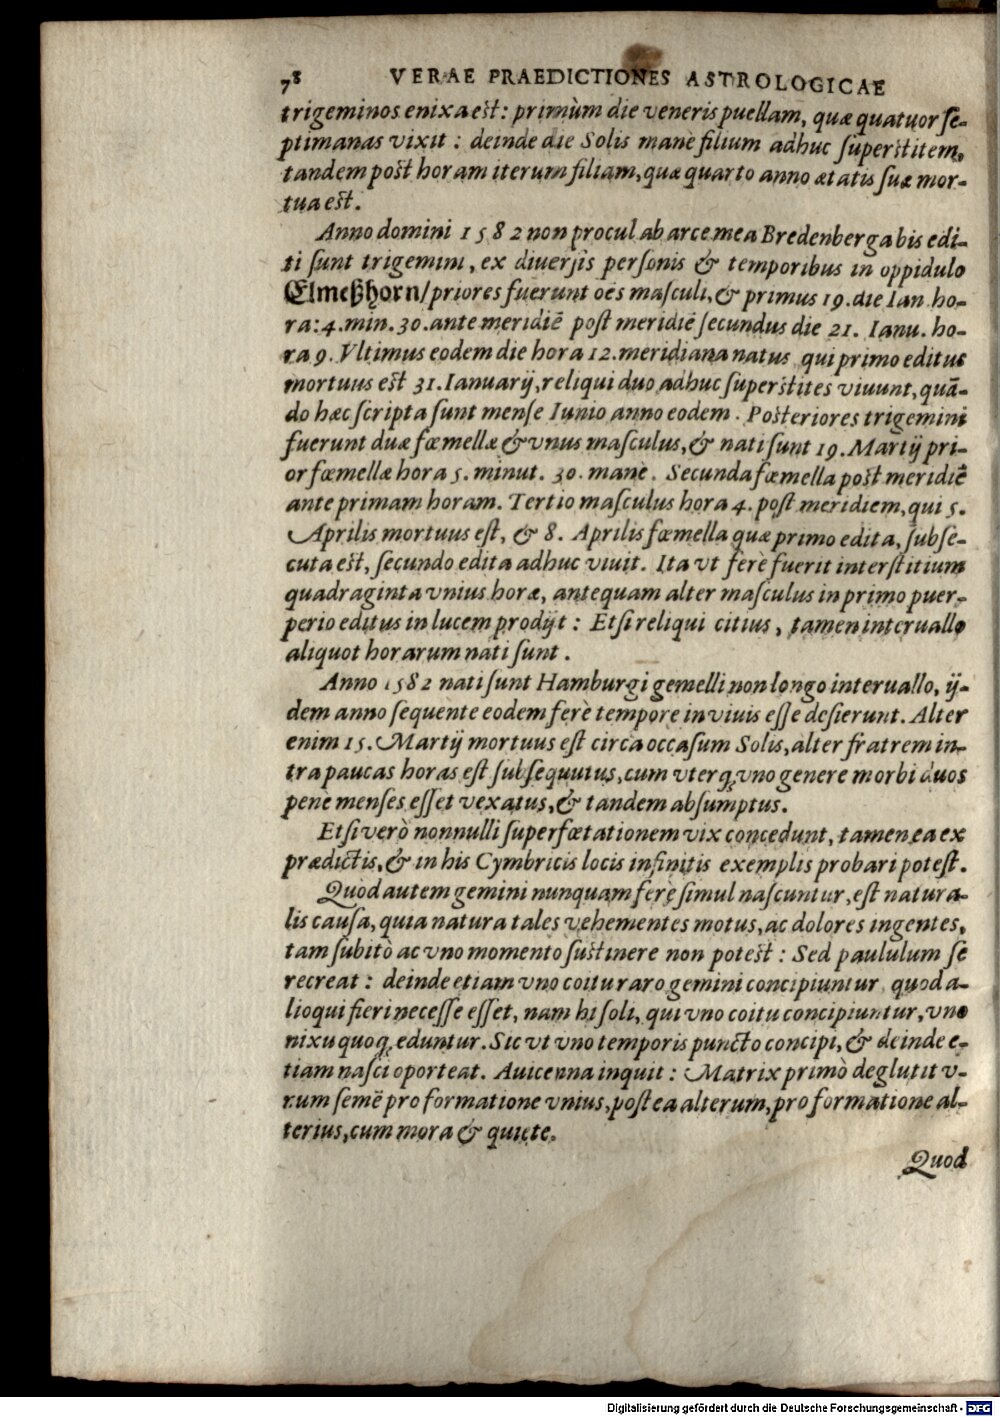 78 VERAE PRAEDICTIONES ASTROLOGICAE
trigeminos enixa est: primùm die veneris puellam, quæ quatuor ſe-
ptimanas vixit : deinde die Solis manè filium adhuc ſuperſtitem,
tandem post horam iterum filiam, quæ quarto anno ætatis ſuæ mor-
tua est.
Anno domini 1582 non procul ab arce mea Bredenberga bis edi-
ti ſunt trigemini, ex diuerſis perſonis & temporibus in oppidulo
Elmeßhorn/ priores fuerunt oẽs maſculi, & primus 19. die Ian. ho-
ra: 4. min. 30. ante meridiẽ post meridiẽ ſecundus die 21. Ianu. ho-
ra 9. Vltimus eodem die hora 12. meridiana natus, qui primo editus
mortuus est 31. Ianuarij, reliqui duo adhuc ſuperſtites viuunt, quã-
do hæc ſcripta ſunt menſe Iunio anno eodem. Poſteriores trigemini
fuerunt duæ fœmellæ & vnus maſculus, & nati ſunt 19. Martij pri-
or fœmellæ hora 5. minut. 30. mane. Secunda fœmella post meridiẽ
ante primam horam. Tertio maſculus hora 4. poſt meridiem, qui 5.
Aprilis mortuus eſt, & 8. Aprilis fœmella quæ primo edita, ſubſe-
cuta eſt, ſecundo edita adhuc viuit. Ita vt ferè fuerit interſtitium
quadraginta vnius horæ, antequam alter maſculus in primo puer-
perio editus in lucem prodijt : Etſi reliqui citius, tamen interuallo
aliquot horarum nati ſunt.
Anno 1582 nati ſunt Hamburgi gemelli non longo interuallo, ij-
dem anno ſequente eodem ferè tempore in viuis eſſe deſierunt. Alter
enim 15. Martij mortuus eſt circa occaſum Solis, alter fratrem in-
tra paucas horas eſt ſubſequutus, cum vterq; vno genere morbi duos
pene menſes eſſet vexatus, & tandem abſumptus.
Etſi verò nonnulli ſuperfœtationem vix concedunt, tamen ea ex
prædictis, & in his Cymbricis locis infinitis exemplis probari poteſt.
Quod autem gemini nunquam ferè ſimul naſcuntur, eſt natura-
lis cauſa, quia natura tales vehementes motus, ac dolores ingentes,
tam ſubitò ac vno momento ſuſtinere non poteſt : Sed paululum ſe
recreat : deinde etiam vno coitu raro gemini concipiuntur, quod a-
lioqui fieri neceſſe eſſet, nam hi ſoli, qui vno coitu concipiuntur, vno
nixu quoq; eduntur. Sic vt vno temporis puncto concipi, & deinde e-
tiam naſci oporteat. Auicenna inquit : Matrix primò deglutit v-
num ſemẽ pro formatione vnius, poſtea alterum, pro formatione al-
terius, cum mora & quiete.
Quod
Digitalisierung gefördert durch die Deutsche Forschungsgemeinschaft - DFG